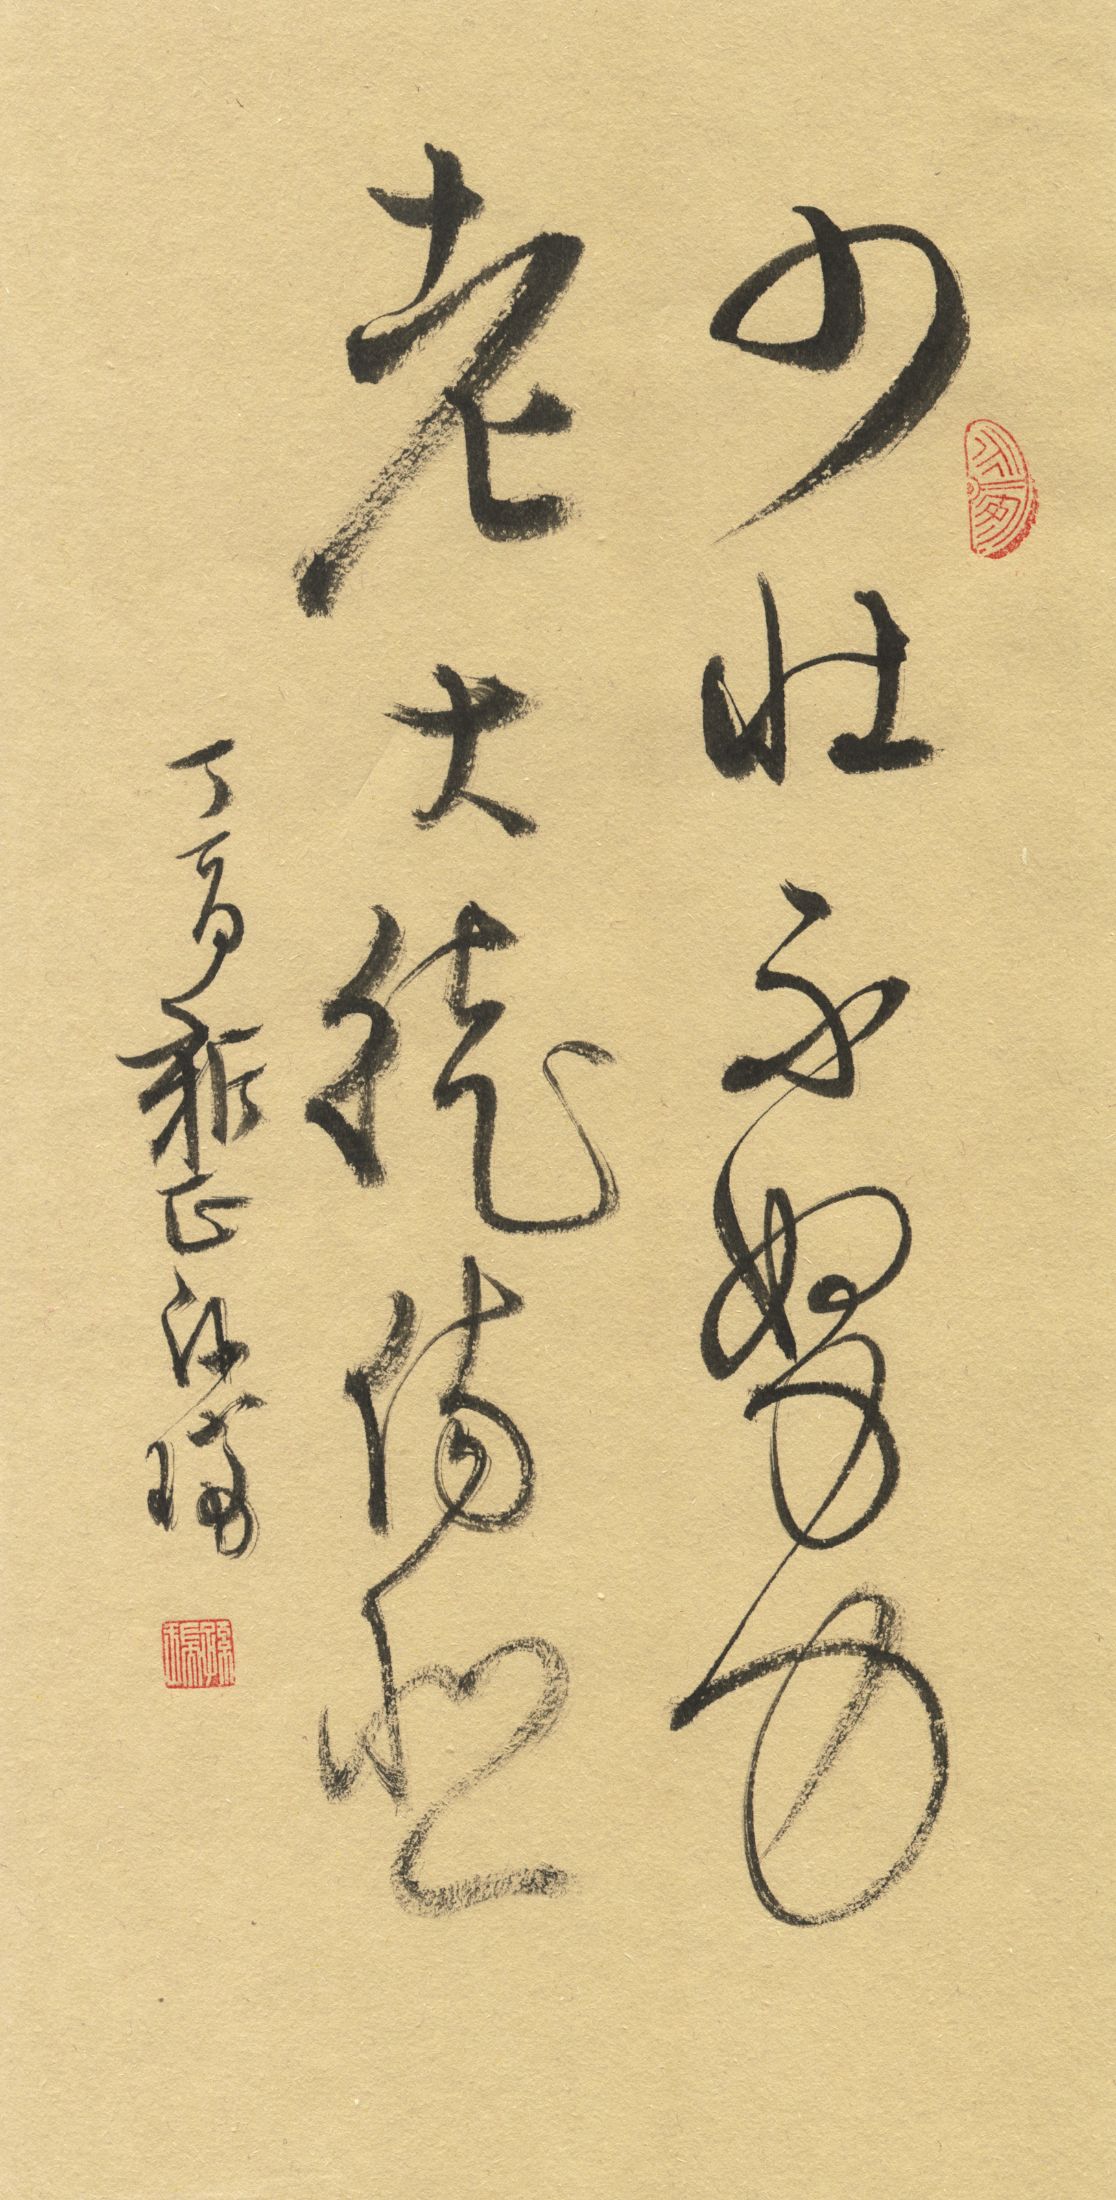 少壮不努力
老大徒伤悲
丁酉